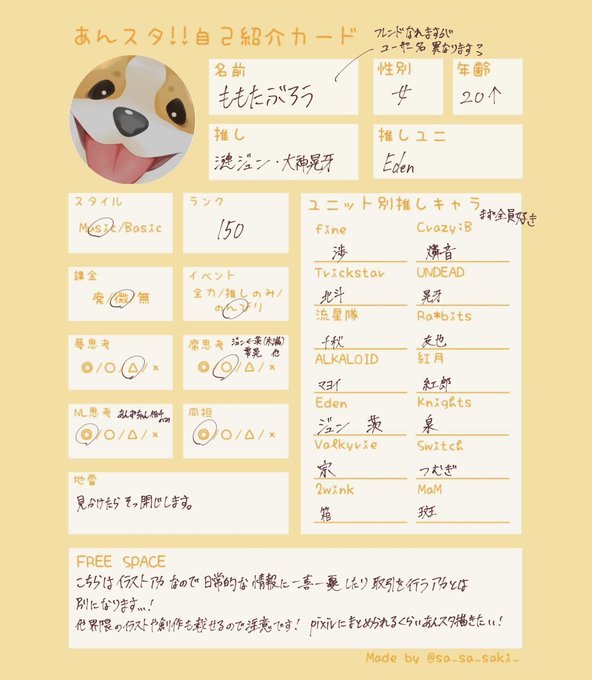 あんスタ!!自己紹介カード
フレンドなれますが
ユーザー名 異なります
名前
ももたぶろう
性別
女
年齢
20↑
推し
漣ジュン・大神晃牙
推しユニ
Eden
スタイル
Music/Basic
ランク
150
課金
廃/微/無
イベント
全力/推しのみ/
のんびり
夢思考
◎/○/△/×
腐思考
ジュン←茨(永満)
零晃 他
◎/○/△/×
NL思考
あんずちゃん相手
のみ
◎/○/△/×
同担
◎/○/△/×
地雷
見かけたら そっ閉じします。
ユニット別推しキャラ
まず全員好き
fine
渉
Crazy:B
燐音
Trickstar
北斗
UNDEAD
晃牙
流星隊
千秋
Ra*bits
友也
ALKALOID
マヨイ
紅月
紅郎
Eden
ジュン 茨
Knights
泉
Valkyrie
宗
Switch
つむぎ
2wink
箱
MaM
斑
FREE SPACE
こちらは イラストアカ なので 日常的な 情報に 一喜一憂 したり 取引を行うアカとは
別になります...!
他界隈のイラストや創作も載せるので注意です! pixivにまとめられるくらいあんスタ描きたい!
Made by @sa_sa_saki_